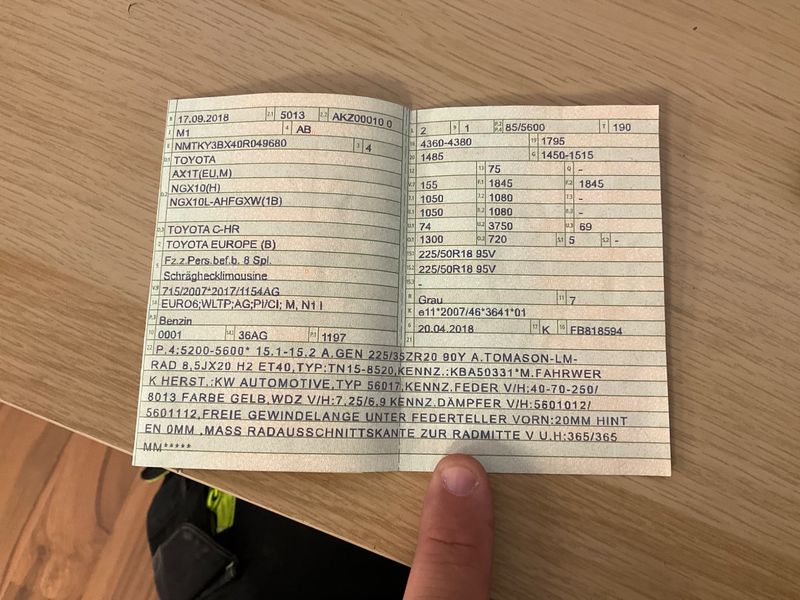 B 17.09.2018 2.1 5013 2.2 AKZ00010 0
J M1 4 AB
E NMTKY3BX40R049680 3 4
D.1 TOYOTA
D.2 AX1T(EU,M)
NGX10(H)
NGX10L-AHFGXW(1B)
D.3 TOYOTA C-HR
2 TOYOTA EUROPE (B)
5 Fz.z.Pers.bef.b. 8 Spl.
Schräghecklimousine
V.9 715/2007*2017/1154AG
14 EURO6;WLTP;AG;PI/CI; M, N1 I
P.3 Benzin
10 0001 14.1 36AG P.1 1197
L 2 9 1 P.2 P.4 85/5600 T 190
18 4360-4380 19 1795
20 1485 G 1450-1515
12 - 13 75 Q -
V.7 155 F.1 1845 F.2 1845
7.1 1050 7.2 1080 7.3 -
8.1 1050 8.2 1080 8.3 -
U.1 74 U.2 3750 U.3 69
O.1 1300 O.2 720 S.1 5 S.2 -
15.1 225/50R18 95V
15.2 225/50R18 95V
15.3 -
R Grau 11 7
K e11*2007/46*3641*01
6 20.04.2018 17 K 16 FB818594
21
22 P.4:5200-5600* 15.1-15.2 A.GEN 225/35ZR20 90Y A.TOMASON-LM-
RAD 8,5JX20 H2 ET40,TYP:TN15-8520,KENNZ.:KBA50331*M.FAHRWER
K HERST.:KW AUTOMOTIVE,TYP 56017,KENNZ.FEDER V/H:40-70-250/
8013 FARBE GELB,WDZ V/H:7,25/6,9 KENNZ.DÄMPFER V/H:5601012/
5601112,FREIE GEWINDELANGE UNTER FEDERTELLER VORN:20MM HINT
EN 0MM ,MASS RADAUSSCHNITTSKANTE ZUR RADMITTE V U.H:365/365
MM*****